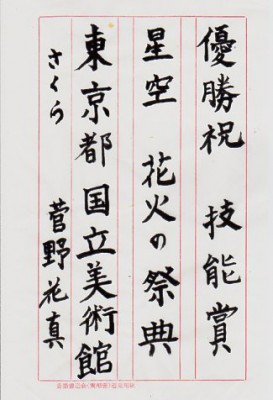 優勝祝 技能賞
星空 花火の祭典
東京都 国立美術館
さくら 菅野花真